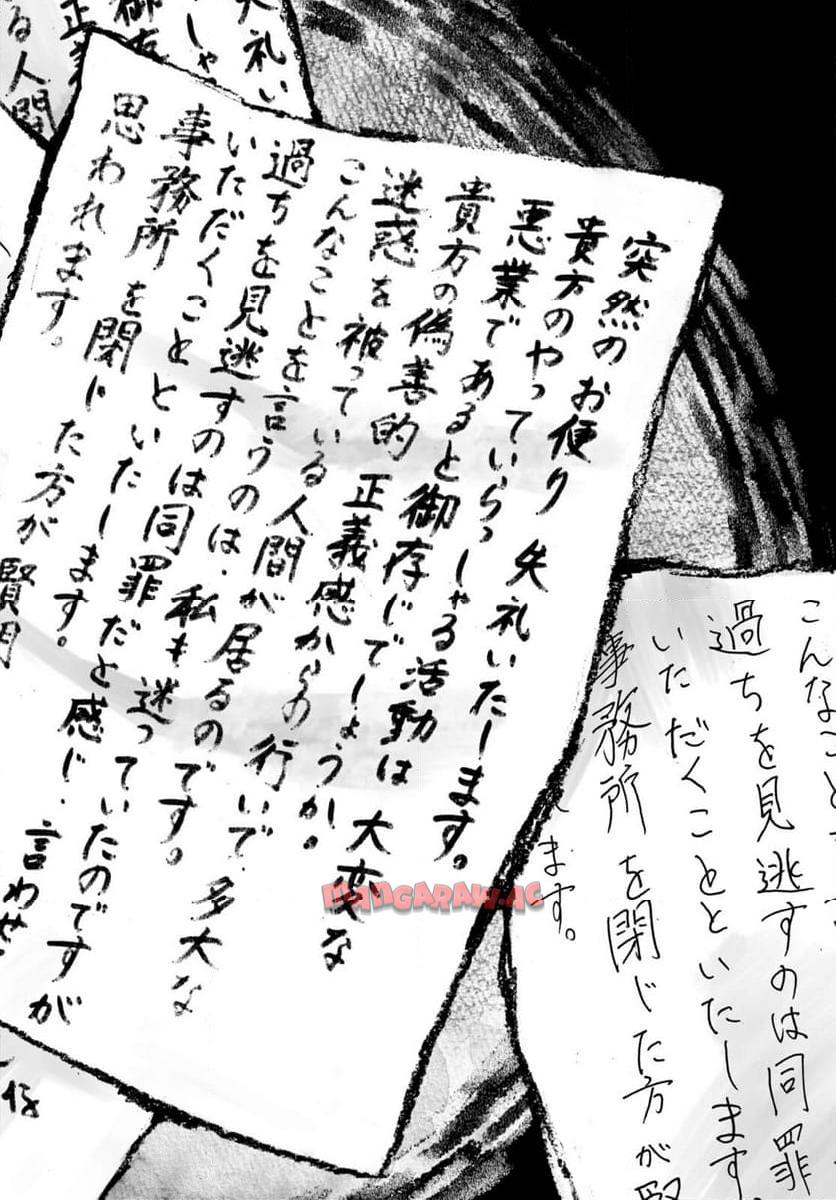 突然のお便り 失礼いたします。
貴方のやっていらっしゃる活動は 大変な
悪業であると御存じでしょうか。
貴方の偽善的 正義感からの行いで、多大な
迷惑を被っている人間が居るのです。
こんなことを言うのは、私も迷っていたのですが
過ちを見逃すのは同罪だと感じ、言わせ
いただくことといたします。
事務所を閉じた方が賢明
思われます。
こんなこと
過ちを見逃すのは同罪
いただくことといたします
事務所を閉じた方が賢
ます。
礼い
しゃ
御存
正義
る人間
MANGARAW.AC